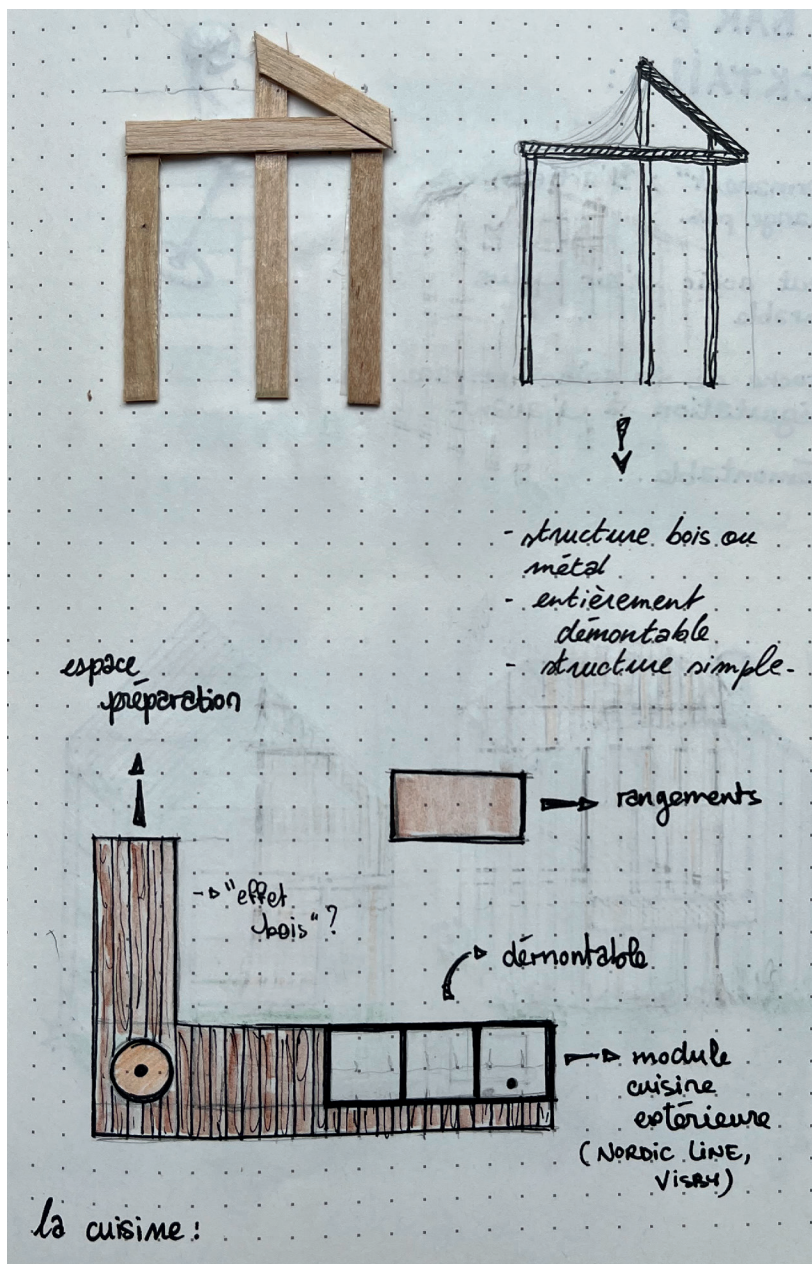 - structure bois ou
métal
- entièrement
démontable
- structure simple.
espace
préparation
rangements
"effet
bois"?
démontable
module
cuisine
extérieure
(NORDIC LINE,
VISBY)
la cuisine :